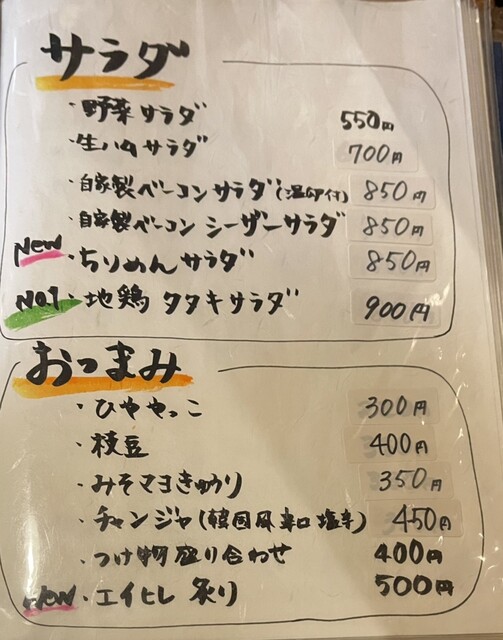 サラダ
・野菜サラダ 550円
・生ハムサラダ 700円
・自家製ベーコンサラダ(温卵付) 850円
・自家製ベーコン シーザーサラダ 850円
New ・ちりめんサラダ 850円
No.1 ・地鶏タタキサラダ 900円
おつまみ
・ひややっこ 300円
・枝豆 400円
・みそマヨきゅうり 350円
・チャンジャ(韓国風辛口塩辛) 450円
・つけ物盛り合わせ 400円
New ・エイヒレ炙り 500円